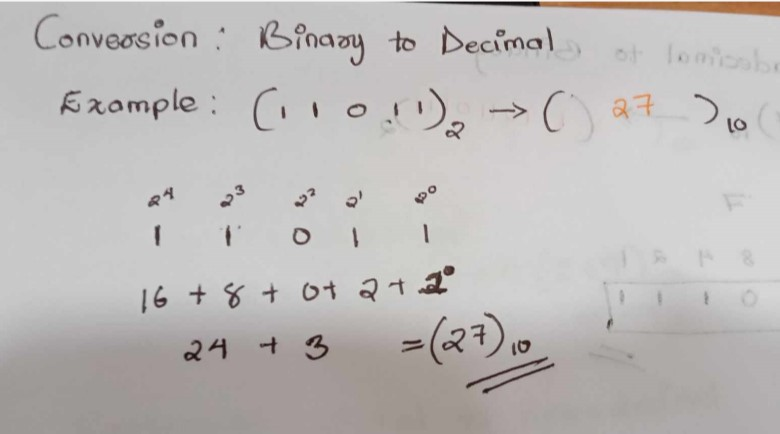 Conversion : Binary to Decimal
Example : (1 1 0 1 1)₂ → ( 27 )₁₀
2⁴ 2³ 2² 2¹ 2⁰
1 1 0 1 1
16 + 8 + 0 + 2 + 2⁰
24 + 3 = (27)₁₀